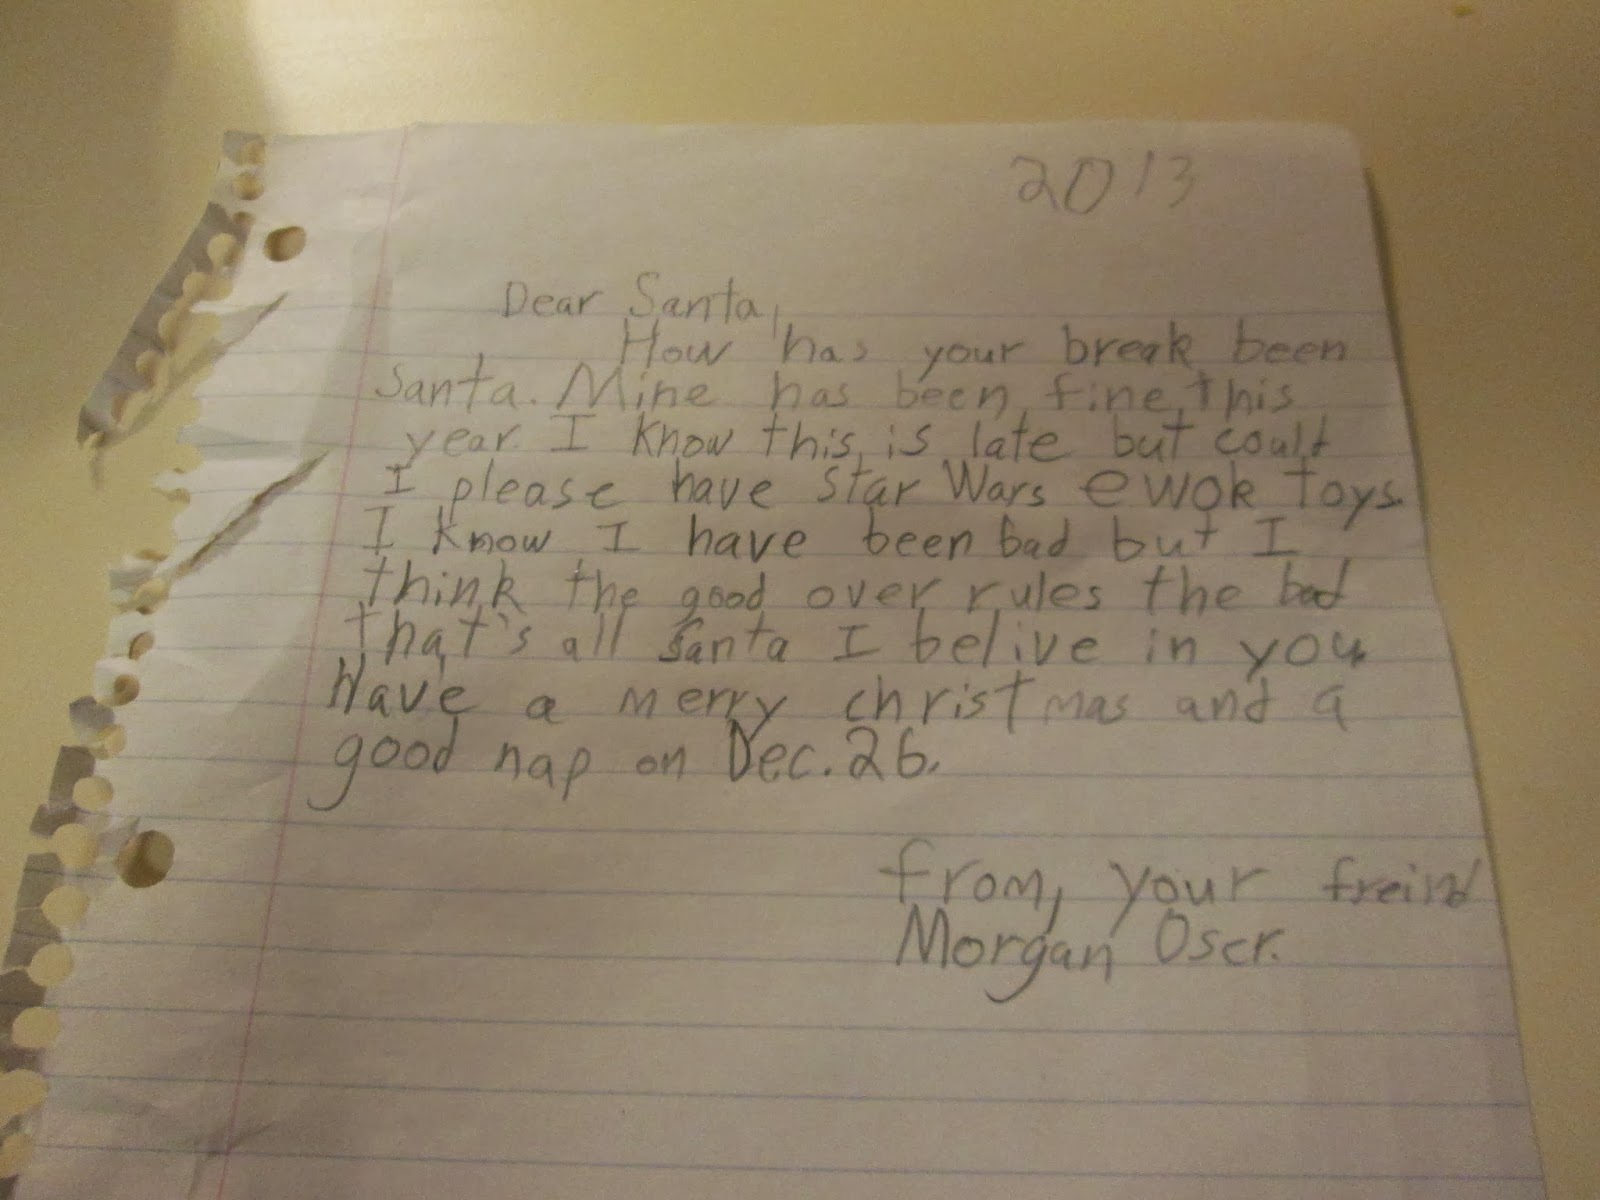 2013
Dear Santa,
How has your break been
Santa. Mine has been fine this
year. I know this is late but could
I please have Star Wars ewok toys.
I know I have been bad but I
think the good over rules the bad
that's all Santa I belive in you
Have a merry christmas and a
good nap on Dec. 26.
from, your freind
Morgan Oser.